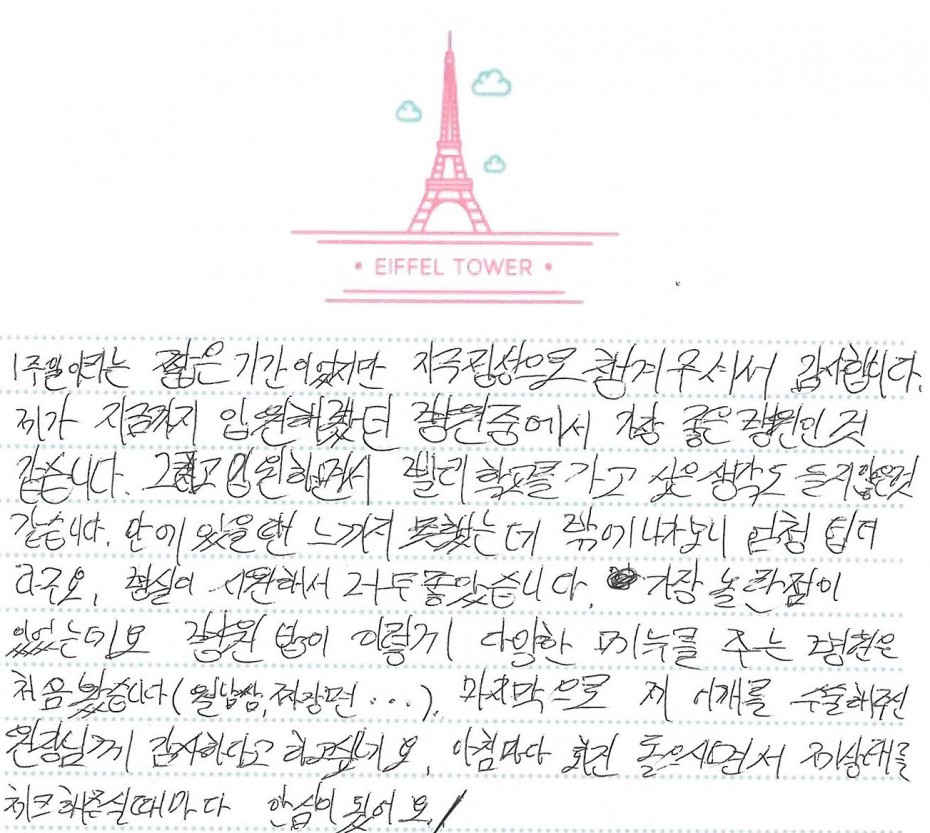 • EIFFEL TOWER •
1주일이라는 짧은 기간이었지만 지극정성으로 챙겨주셔서 감사합니다.
제가 지금까지 입원해봤던 병원중에서 가장 좋은 병원인 것
같습니다. 그리고 입원하면서 빨리 학교를 가고 싶은 생각도 들지않은것
같습니다. 안에 있을땐 느끼지 못했는데 밖에 나가보니 엄청 덥더
라구요, 병실이 시원해서 너무 좋았습니다. 가장 놀란점이
있었는데요 병원 밥이 이렇게 다양한 메뉴를 주는 병원은
처음봤습니다(월남쌈, 짜장면...). 마지막으로 제 어깨를 수술해주신
원장님께 감사하다고 하고싶네요. 아침마다 회진 돌으시면서 제상태를
체크해주실때마다 안심이 됐어요!